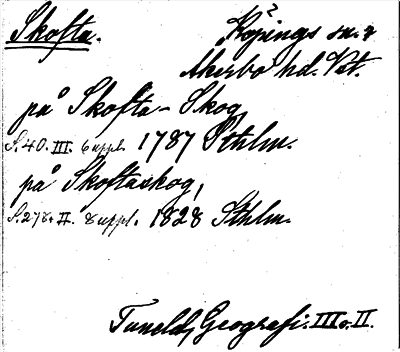 Skofta.
Köpings sn. ?
Åkerbo hd. Vst.
på Skofta-Skog,
S. 40. III. 6 uppl. 1787 Sthlm.
på Skoftaskog,
S. 278. II. 8 uppl. 1828 Sthlm.
Tuneld, Geografi. III o. II.